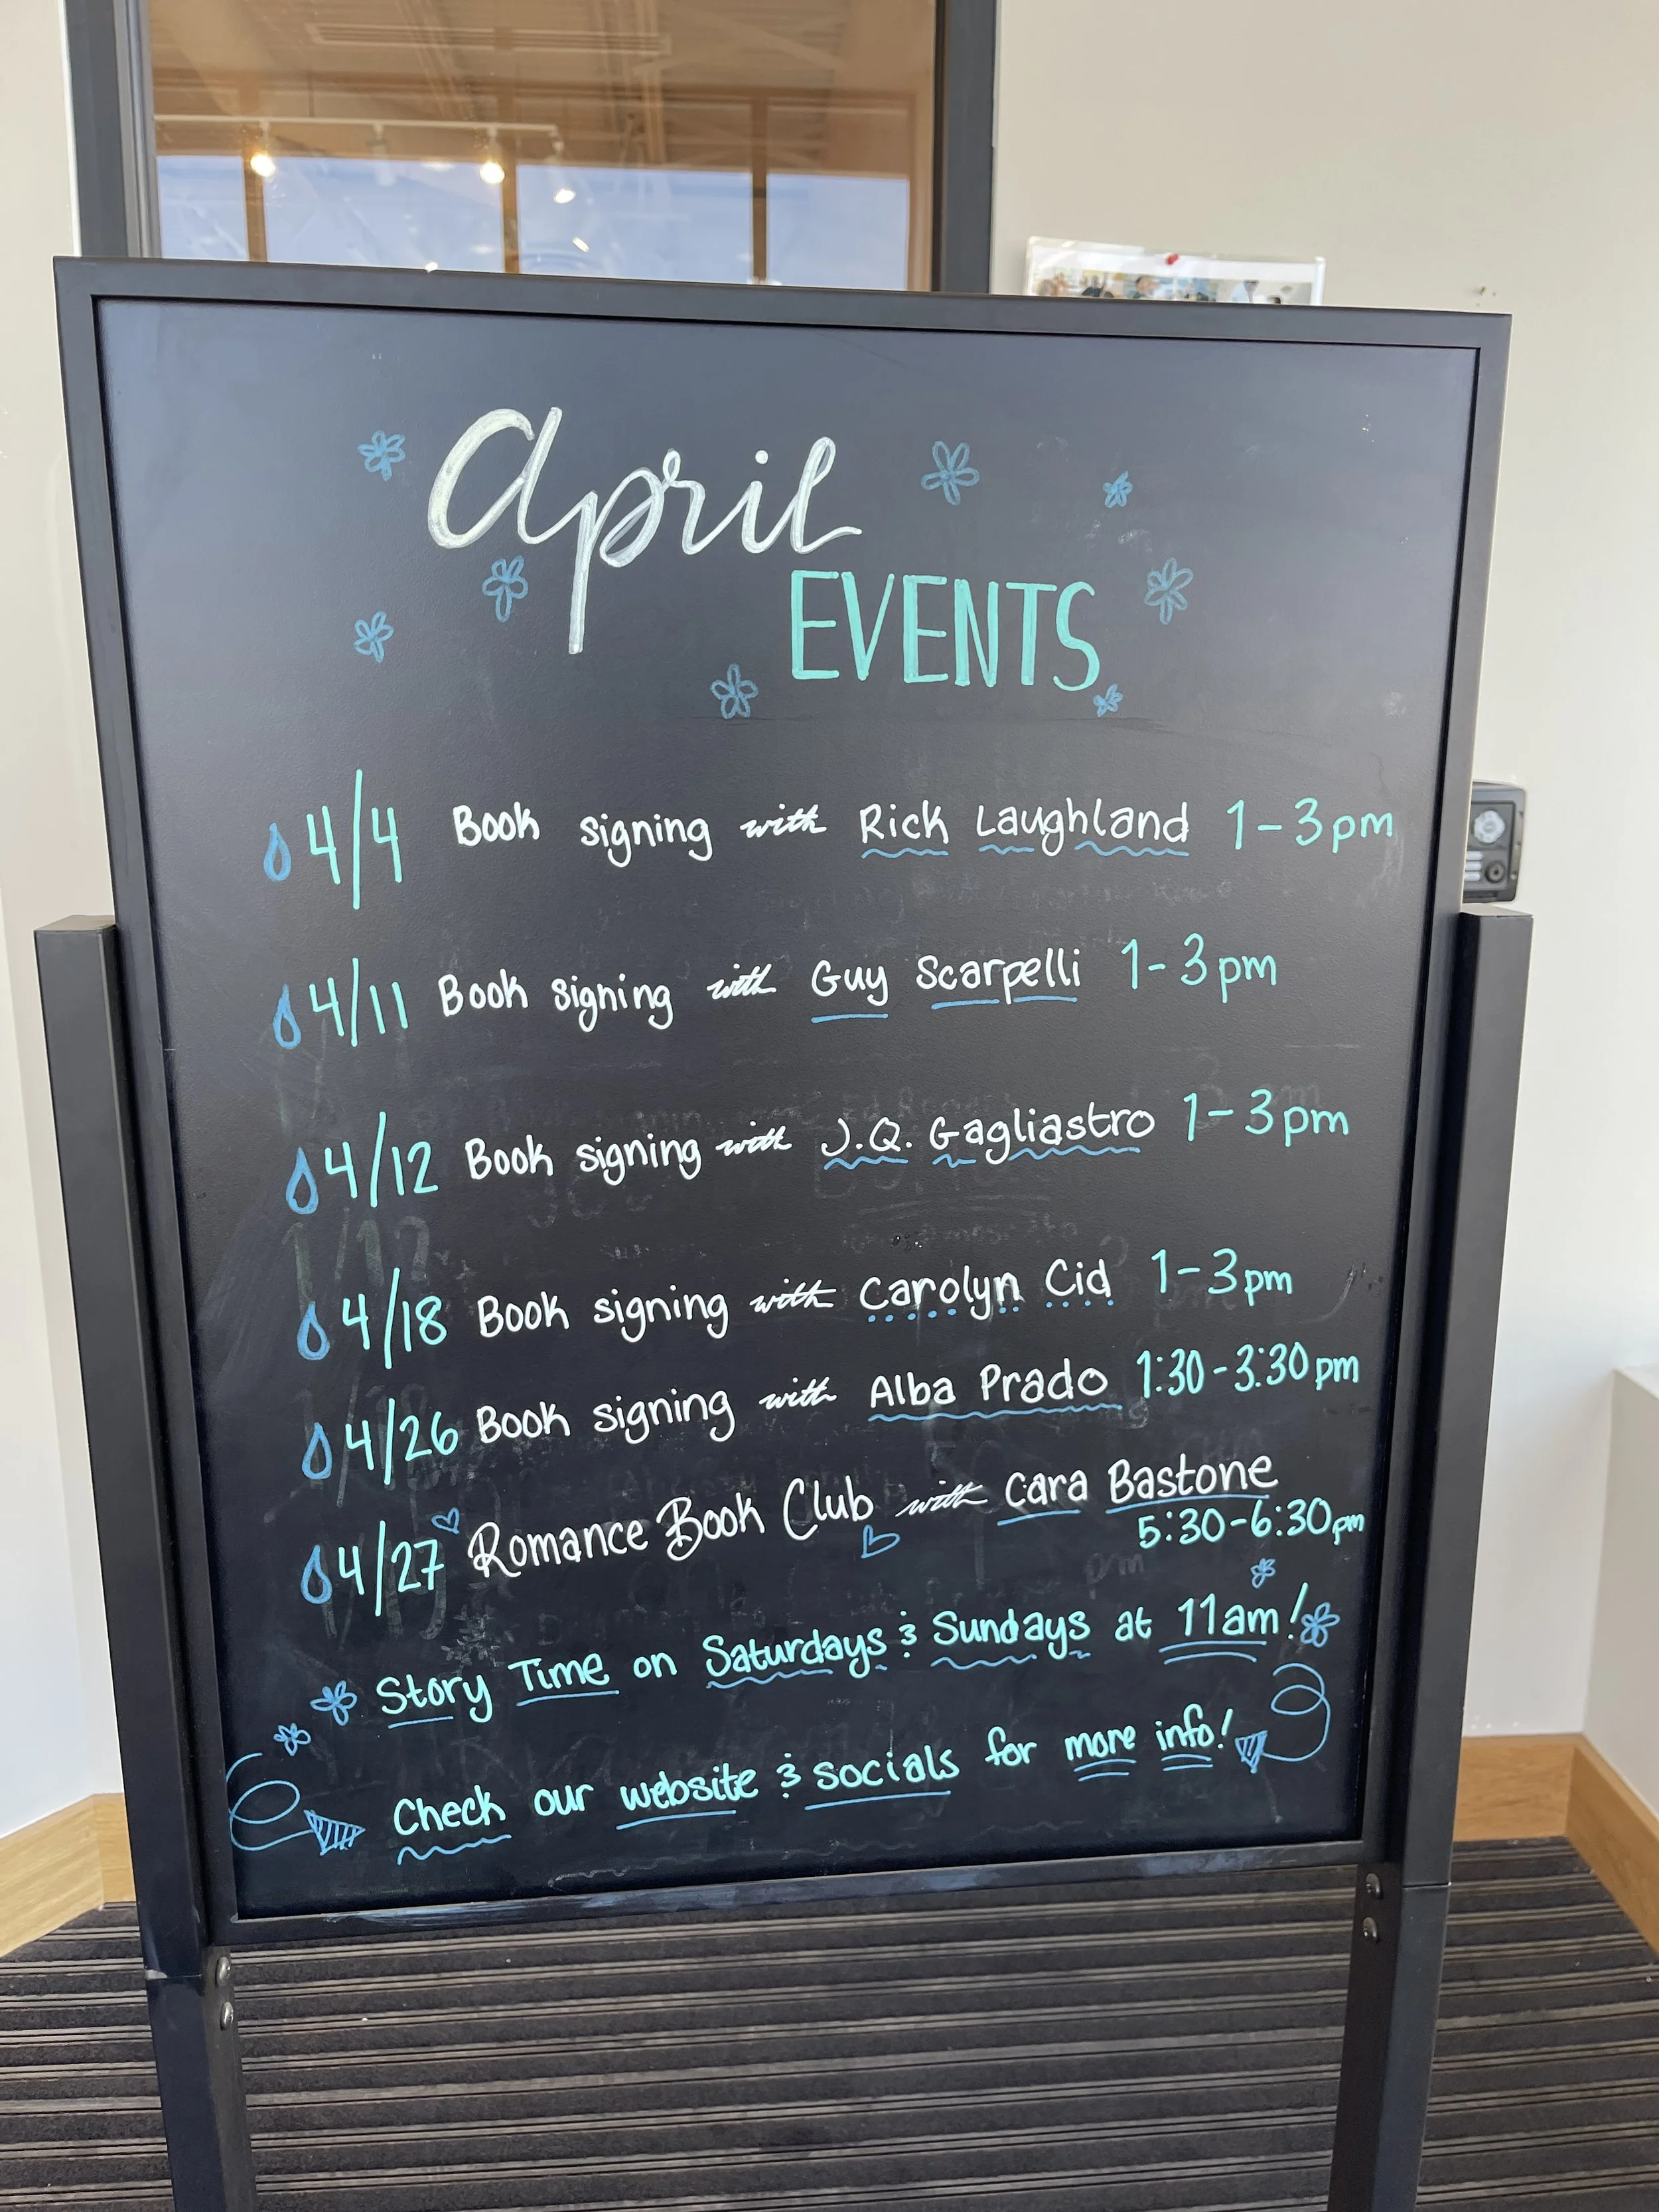 April
EVENTS
4/4 Book signing with Rick Laughland 1-3pm
4/11 Book signing with Guy Scarpelli 1-3pm
4/12 Book signing with J.Q. Gagliastro 1-3pm
4/18 Book signing with Carolyn Cid 1-3pm
4/26 Book signing with Alba Prado 1:30-3:30pm
4/27 Romance Book Club with Cara Bastone
5:30-6:30pm
Story Time on Saturdays & Sundays at 11am!
Check our website & socials for more info!